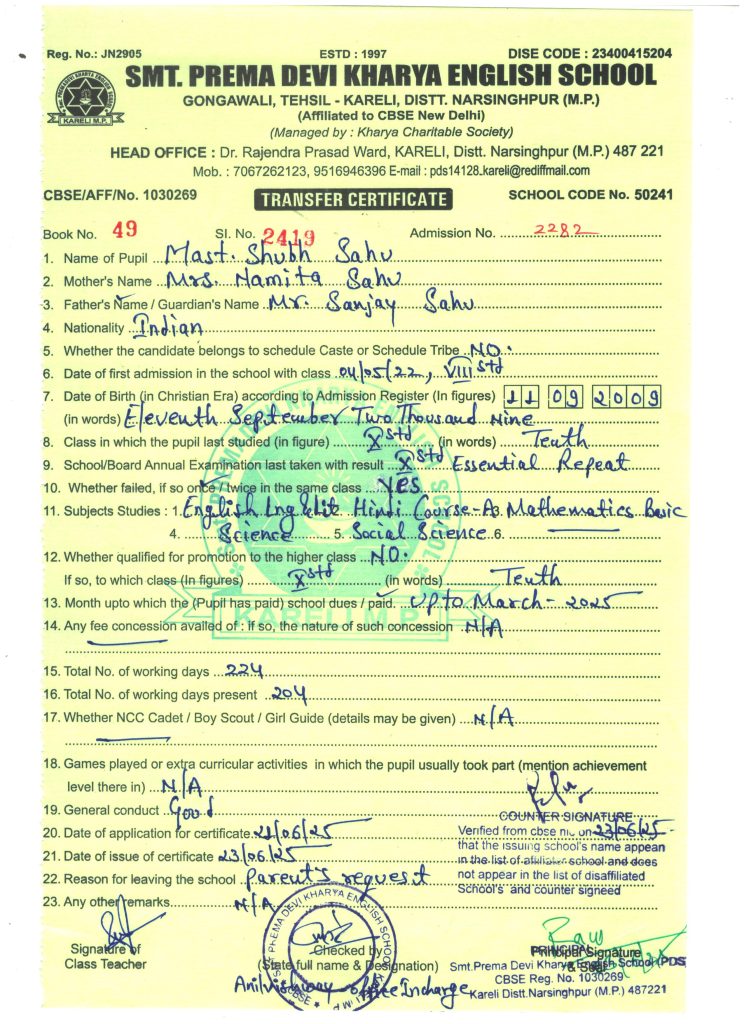 Reg. No.: JN2905 ESTD : 1997 DISE CODE : 23400415204
SMT. PREMA DEVI KHARYA ENGLISH SCHOOL
KARELI M.P.
GONGAWALI, TEHSIL - KARELI, DISTT. NARSINGHPUR (M.P.)
(Affiliated to CBSE New Delhi)
(Managed by : Kharya Charitable Society)
HEAD OFFICE : Dr. Rajendra Prasad Ward, KARELI, Distt. Narsinghpur (M.P.) 487 221
Mob. : 7067262123, 9516946396 E-mail : pds14128.kareli@rediffmail.com
CBSE/AFF/No. 1030269 TRANSFER CERTIFICATE SCHOOL CODE No. 50241
Book No. 49 Sl. No. 2419 Admission No. 2282
1. Name of Pupil Mast. Shubh Sahu
2. Mother's Name Mrs. Namita Sahu
3. Father's Name / Guardian's Name Mr. Sanjay Sahu
4. Nationality Indian
5. Whether the candidate belongs to schedule Caste or Schedule Tribe NO.
6. Date of first admission in the school with class 04/05/22, VIII std
7. Date of Birth (in Christian Era) according to Admission Register (In figures) 11 09 2009
(in words) Eleventh September Two Thousand Nine
8. Class in which the pupil last studied (in figure) X std (in words) Tenth
9. School/Board Annual Examination last taken with result X std Essential Repeat
10. Whether failed, if so once / twice in the same class Yes
11. Subjects Studies : 1. English Lng & Lit Hindi Course-A 3. Mathematics Basic
4. Science 5. Social Science 6.
12. Whether qualified for promotion to the higher class NO.
If so, to which class (In figures) X std (in words) Tenth
13. Month upto which the (Pupil has paid) school dues / paid. Upto March - 2025
14. Any fee concession availed of : if so, the nature of such concession N/A
15. Total No. of working days 224
16. Total No. of working days present 204
17. Whether NCC Cadet / Boy Scout / Girl Guide (details may be given) N/A
18. Games played or extra curricular activities in which the pupil usually took part (mention achievement
level there in) N/A
19. General conduct Good
COUNTER SIGNATURE
20. Date of application for certificate 21/06/25
Verified from cbse nic on 23/06/25
that the issuing school's name appean
21. Date of issue of certificate 23/06/25
in the list of affiliater school and does
22. Reason for leaving the school Parent's request
not appear in the list of disaffiliated
School's and counter signeed
23. Any other remarks. N/A
PREMA DEVI KHARYA ENGLISH SCHOOL
CBSE KARELI M.P.
Signature of
Class Teacher
Checked by
(State full name & Designation)
Principal Signature
& Seal
PRINCIPAL
Smt.Prema Devi Kharya English School (PDS)
CBSE Reg. No. 1030269
Kareli Distt.Narsinghpur (M.P.) 487221
office Incharge